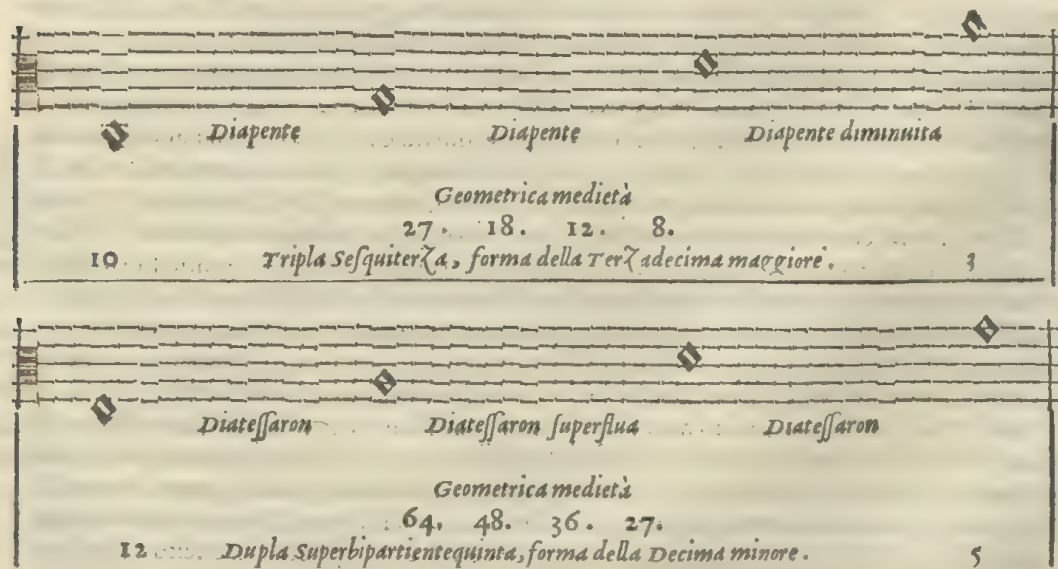 Diapente Diapente Diapente diminuita
Geometrica medietà
27. 18. 12. 8.
10 Tripla Seſquiterza, forma della Terzadecima maggiore. 3
Diateſſaron Diateſſaron ſuperflua Diateſſaron
Geometrica medietà
64. 48. 36. 27.
12 Dupla Superbipartientequinta, forma della Decima minore. 5